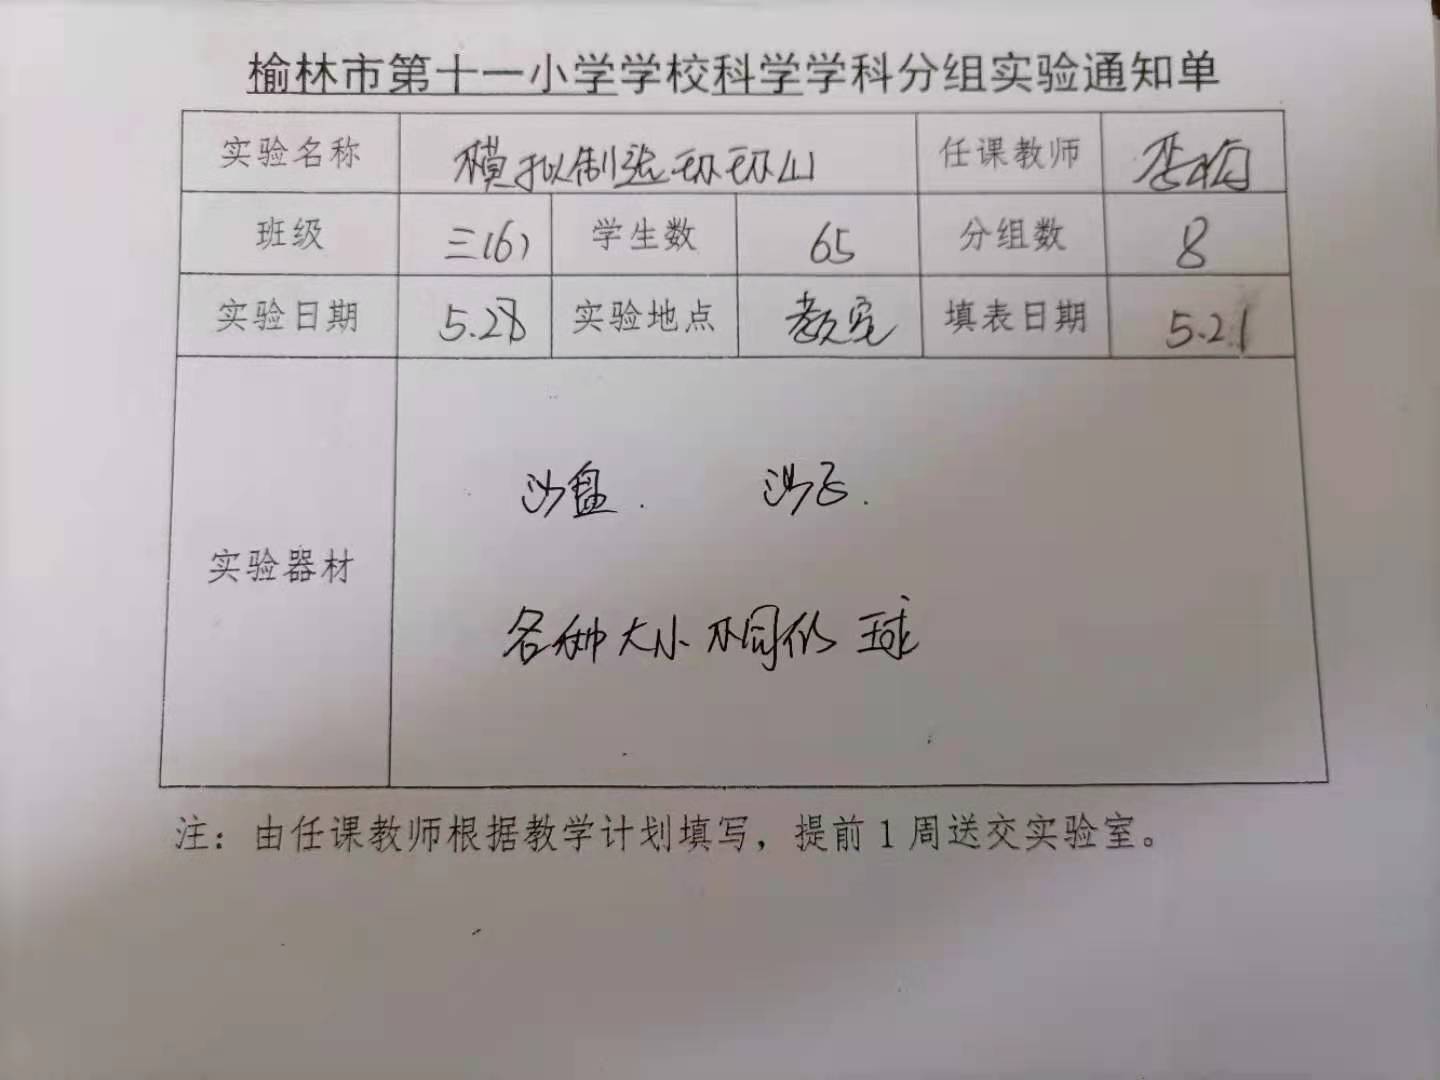 榆林市第十一小学学校科学学科分组实验通知单
实验名称 模拟制造环环山 任课教师
班级 三(6) 学生数 65 分组数 8
实验日期 5.28 实验地点 教室 填表日期 5.21
沙盘. 沙石.
实验器材
各种大小不同的球
注：由任课教师根据教学计划填写，提前1周送交实验室。